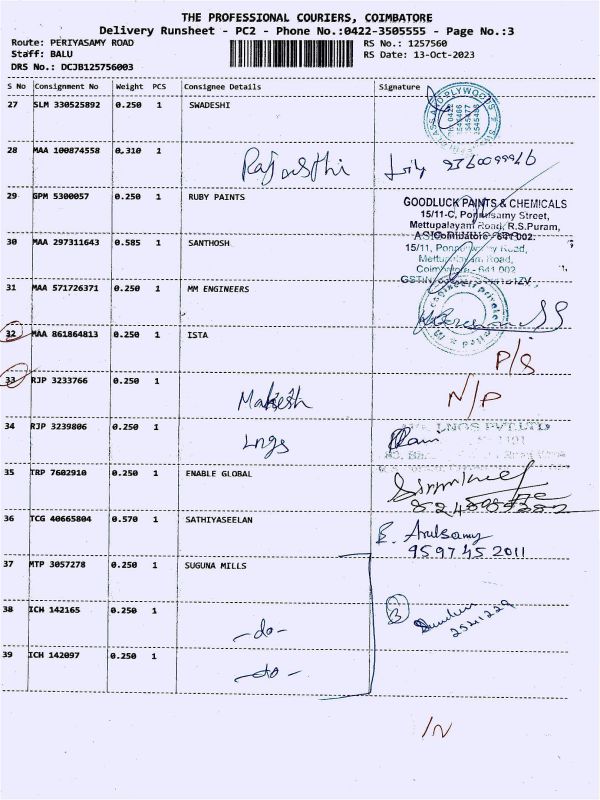 THE PROFESSIONAL COURIERS, COIMBATORE
Delivery Runsheet - PC2 - Phone No.:0422-3505555 - Page No.:3
Route: PERIYASAMY ROAD
RS No.: 1257560
Staff: BALU
RS Date: 13-Oct-2023
DRS No.: DCJB125756003
S No Consignment No Weight PCS Consignee Details Signature
27 SLM 330525892 0.250 1 SWADESHI
28 MAA 100874558 0.310 1
29 GPM 5300057 0.250 1 RUBY PAINTS
GOODLUCK PAINTS & CHEMICALS
15/11-C, Ponnusamy Street,
Mettupalayam Road, R.S.Puram,
Coimbatore - 641 002.
30 MAA 297311643 0.585 1 SANTHOSH
Mettupalayam Road,
Coimbatore - 641 002
31 MAA 571726371 0.250 1 MM ENGINEERS
32 MAA 861864813 0.250 1 ISTA
P/S
33 RJP 3233766 0.250 1 Makesh N/P
34 RJP 3239806 0.250 1 Lngs
LNGS PVT LTD
35 TRP 7602910 0.250 1 ENABLE GLOBAL
36 TCG 40665804 0.570 1 SATHIYASEELAN E. Arulsamy
9597452011
37 MTP 3057278 0.250 1 SUGUNA MILLS
38 ICH 142165 0.250 1 -do-
2541229
39 ICH 142097 0.250 1 -do-
/N